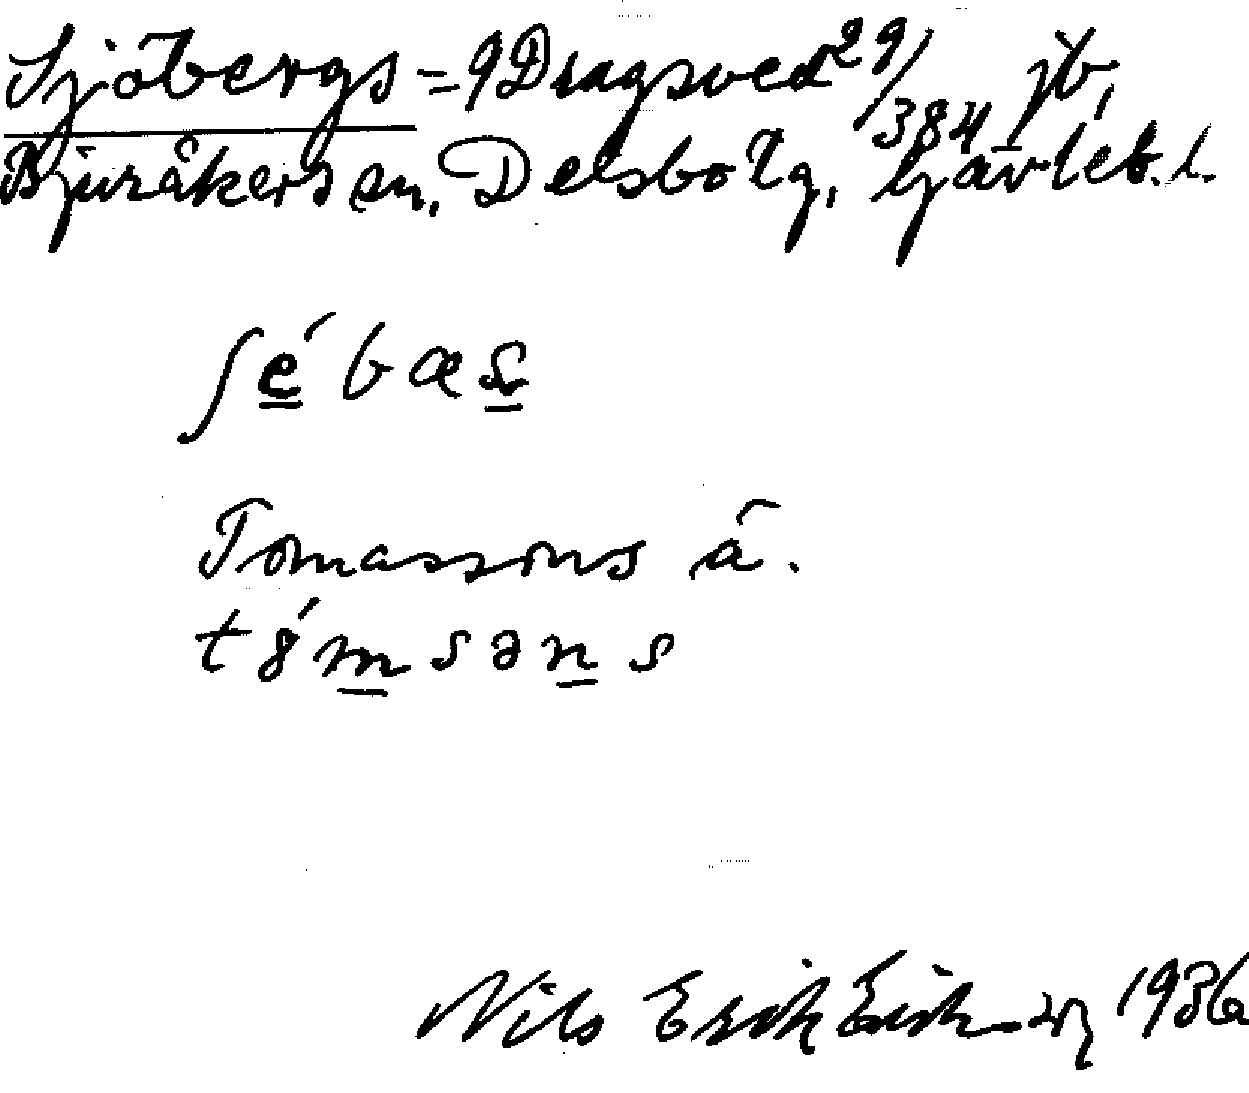 Sjöbergs = 9 Dragsved 29/384 jb,
Bjuråkers sn, Delsbo tg, Gävleb. l.
ʃé bas
Tomassons ä.
tómsəns
Nils Erik Erik 1986